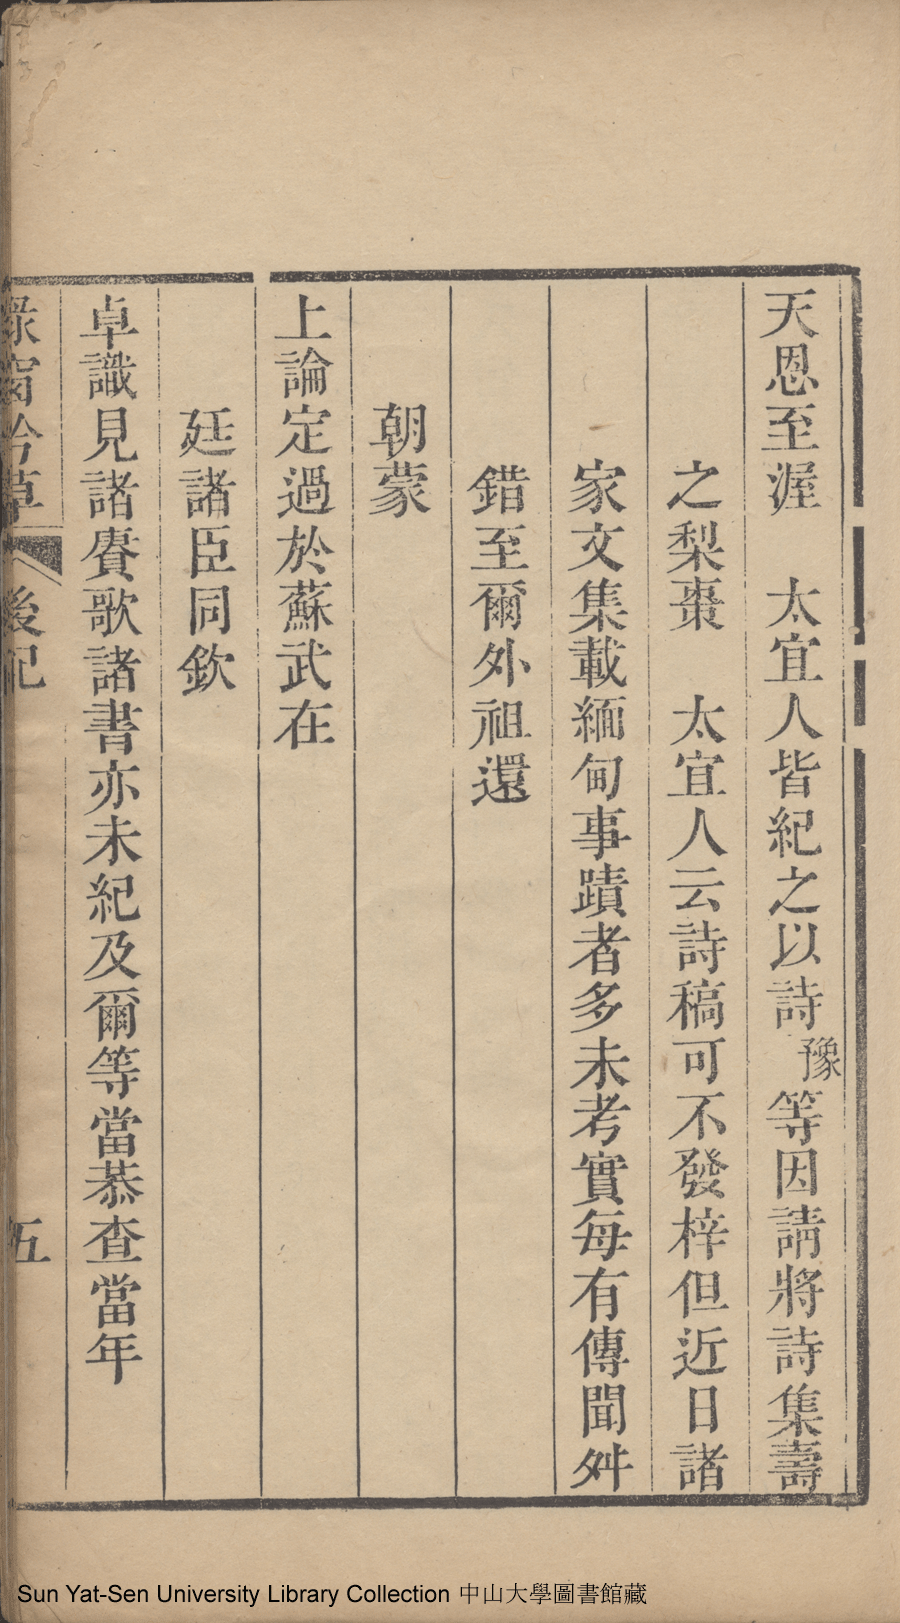 天恩至渥　太宜人皆紀之以詩豫等因請將詩集壽
之梨棗　太宜人云詩稿可不發梓但近日諸
家文集載緬甸事蹟者多未考實每有傳聞舛
錯至爾外祖還
朝蒙
上論定過於蘇武在
廷諸臣同欽
卓識見諸賡歌諸書亦未紀及爾等當恭查當年
綠窗吟草　後記　五
Sun Yat-Sen University Library Collection 中山大學圖書館藏